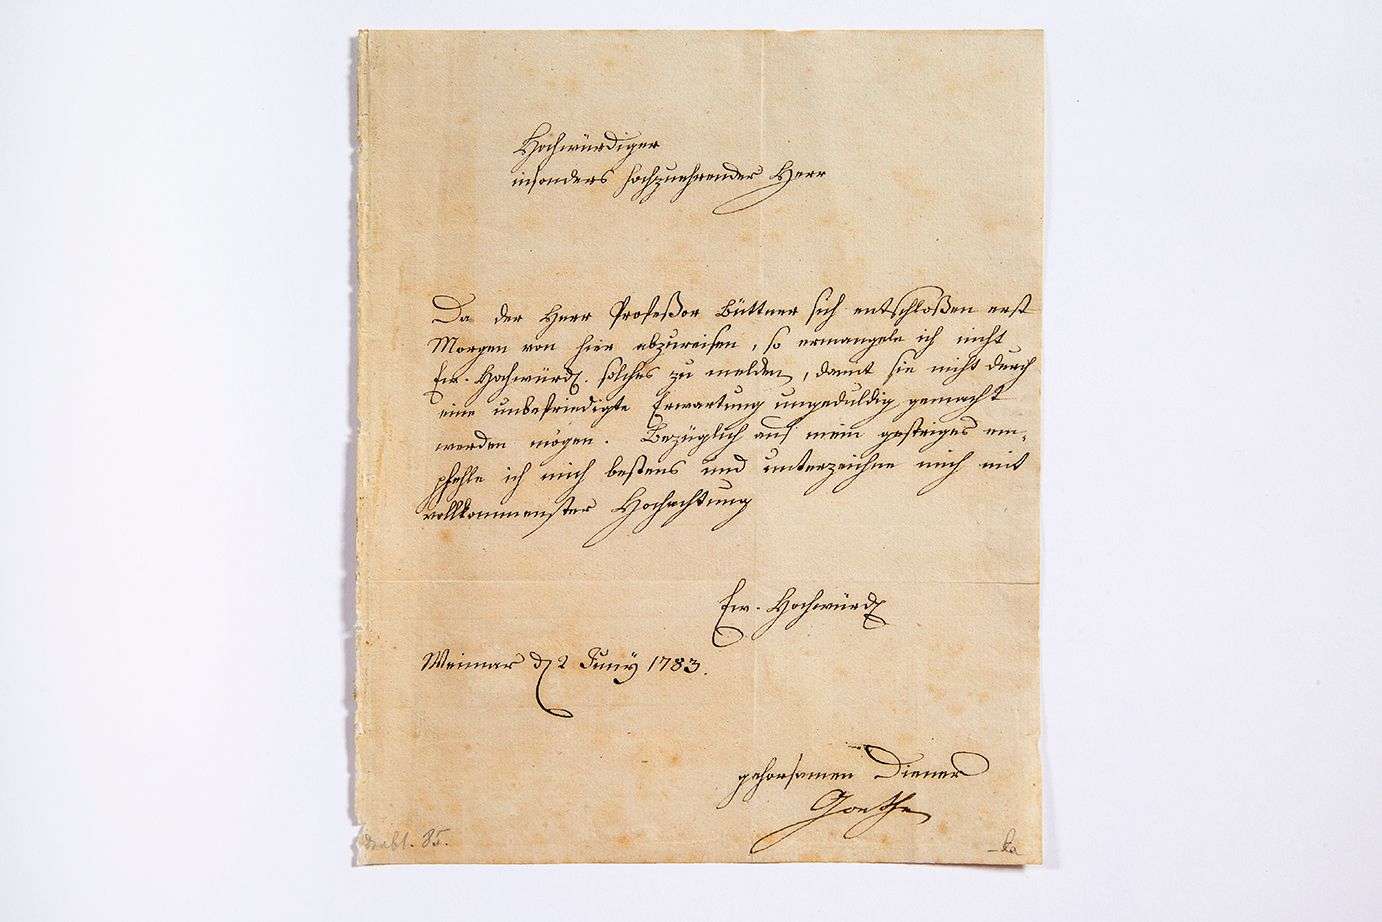 Hochwürdiger
insonders hochzuehrender Herr
Da der Herr Profeßor Büttner sich entschloßen erst
Morgen von hier abzureisen, so ermangele ich nicht
Ew. Hochwürd. solches zu melden, damit sie nicht durch
eine unbefriedigte Erwartung ungeduldig gemacht
werden mögen. Bezüglich auf mein gestriges em-
pfehle ich mich bestens und unterzeichne mich mit
vollkommenster Hochachtung
Ew. Hochwürd
Weimar d 2 Juny 1783.
gehorsamen Diener
Goethe
85.